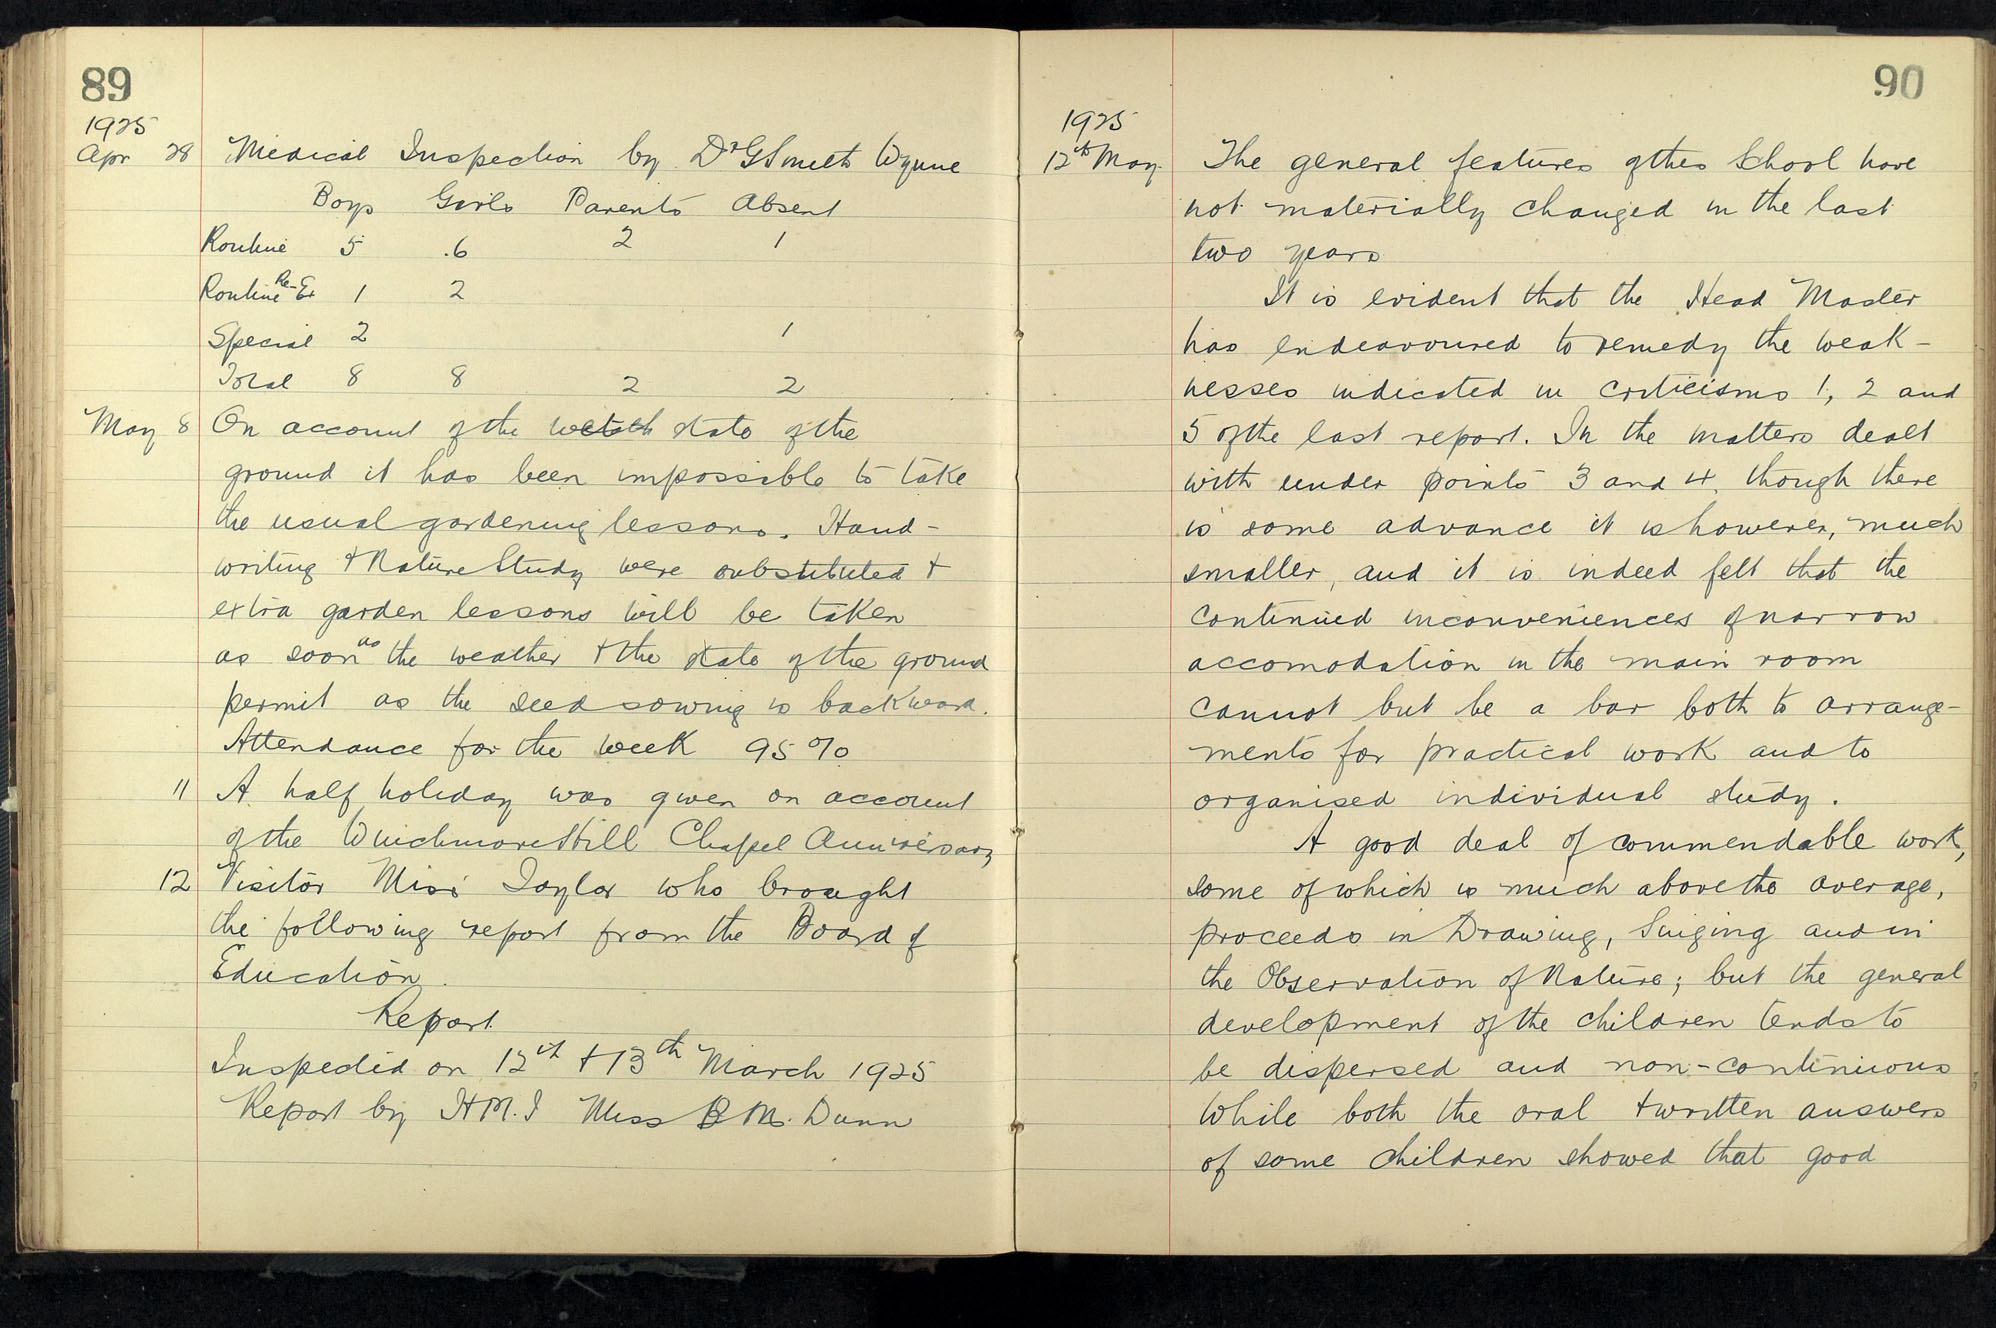 89
1925
Apr 28 Medical Inspection by Dr G Smith Wynne
Boys Girls Parents Absent
Routine 5 .6 2 1
Routine Re-Ex 1 2
Special 2 1
Total 8 8 2 2
May 8 On account of the state of the
ground it has been impossible to take
the usual gardening lessons. Hand-
writing + Nature Study were substituted +
extra garden lessons will be taken
as soon as the weather + the state of the ground
permit as the seed sowing is backward.
Attendance for the week 95%
11 A half holiday was given on account
of the Winchmore Hill Chapel Anniversary
12 Visitor Miss Taylor who brought
the following report from the Board of
Education.
Report
Inspected on 12th + 13th March 1925
Report by H.M.I Miss B M. Dunn
90
1925
12th May The general features of this School have
not materially changed in the last
two years
It is evident that the Head Master
has endeavoured to remedy the weak-
nesses indicated in criticisms 1, 2 and
5 of the last report. In the matters dealt
with under points 3 and 4, though there
is some advance it is however, much
smaller, and it is indeed felt that the
continued inconveniences of narrow
accomodation in the main room
cannot but be a bar both to arrange-
ments for practical work and to
organised individual study.
A good deal of commendable work,
some of which is much above the average,
proceeds in Drawing, Singing and in
the Observation of Nature; but the general
development of the children tends to
be dispersed and non-continuous
While both the oral + written answers
of some children showed that good